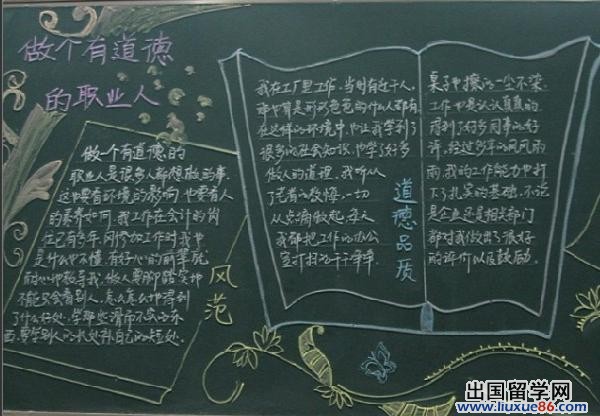 做个有道德
的职业人
做一个有道德的
职业人是很多人都想做的事.
这也要有环境的影响,也要有人
的素养如何,我工作在会计的岗
位已有多年,刚参加工作时我也
是什么也不懂,有好心的前辈就
耐心地教导我,做人要脚踏实地
不能只会看别人,怎么怎么也得到
了什么好处,学那些滑而不实的东
西,要学别人的长处补自己的短处.
风范
我在工厂里工作,当时有近千人,
可算是形形色色的什么人都有,
在这样的环境中,也让我学到了
很多的社会知识,也学了好多
做人的道理,我听从
了老者的教悔,一切
从点滴做起,每天
我都把工作的办公
室打扫的干干净净.
道德品质
桌子也擦的一尘不染,
工作也是认认真真的,
得到了好多同事的好
评,经过多年的风风雨
雨,我的工作能力也打
下了扎实的基础,不论
是企业还是相关部门
都对我做出了很好
的评价以及鼓励.
出国留学网
www.liuxue86.com